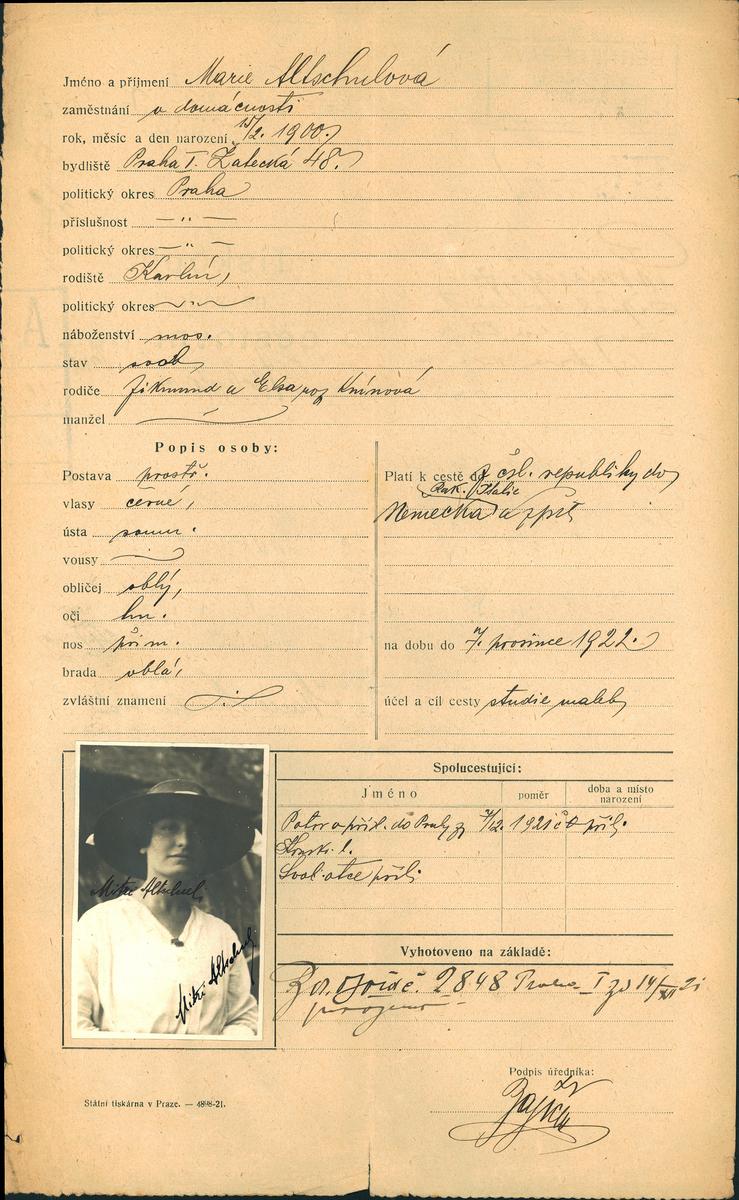 Jméno a příjmení Marie Altschulová
zaměstnání v domácnosti
rok, měsíc a den narození 15/2. 1900.
bydliště Praha I. Žatecká 48.
politický okres Praha
příslušnost — „ —
politický okres — „ —
rodiště Karlín,
politický okres — „ —
náboženství mos.
stav svob,
rodiče Zikmund a Elsa roz Knínová
manžel
Popis osoby:
Postava prostř.
vlasy černé,
ústa soum.
vousy
obličej oblý,
oči hn.
nos přim.
brada oblá,
zvláštní znamení
Platí k cestě do z čsl. republiky do
Rak. Italie
Německa a zpět
na dobu do 7. prosince 1922.
účel a cíl cesty studie malby
Spolucestující:
Jméno poměr doba a místo narození
do Prahy 1921 přil.
Svol. otce přil.
Mitzi Altschul
Mitzi Altschul
Vyhotoveno na základě:
2848 Praha I 14/XII 21
Podpis úředníka:
Státní tiskárna v Praze. — 4898-21.